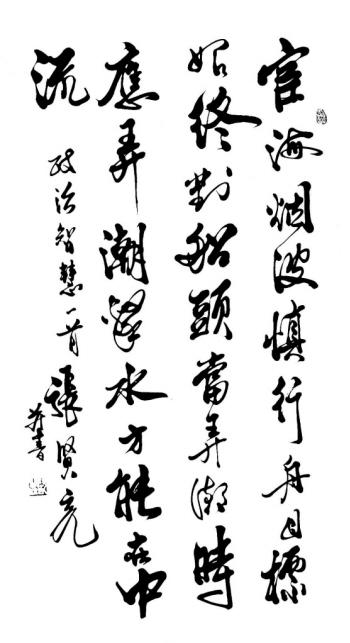 宦海烟波慎行舟目標
始終對船頭當弄潮時
應弄潮擇水方能在中
流
政治智慧一首 張賢亮
并書